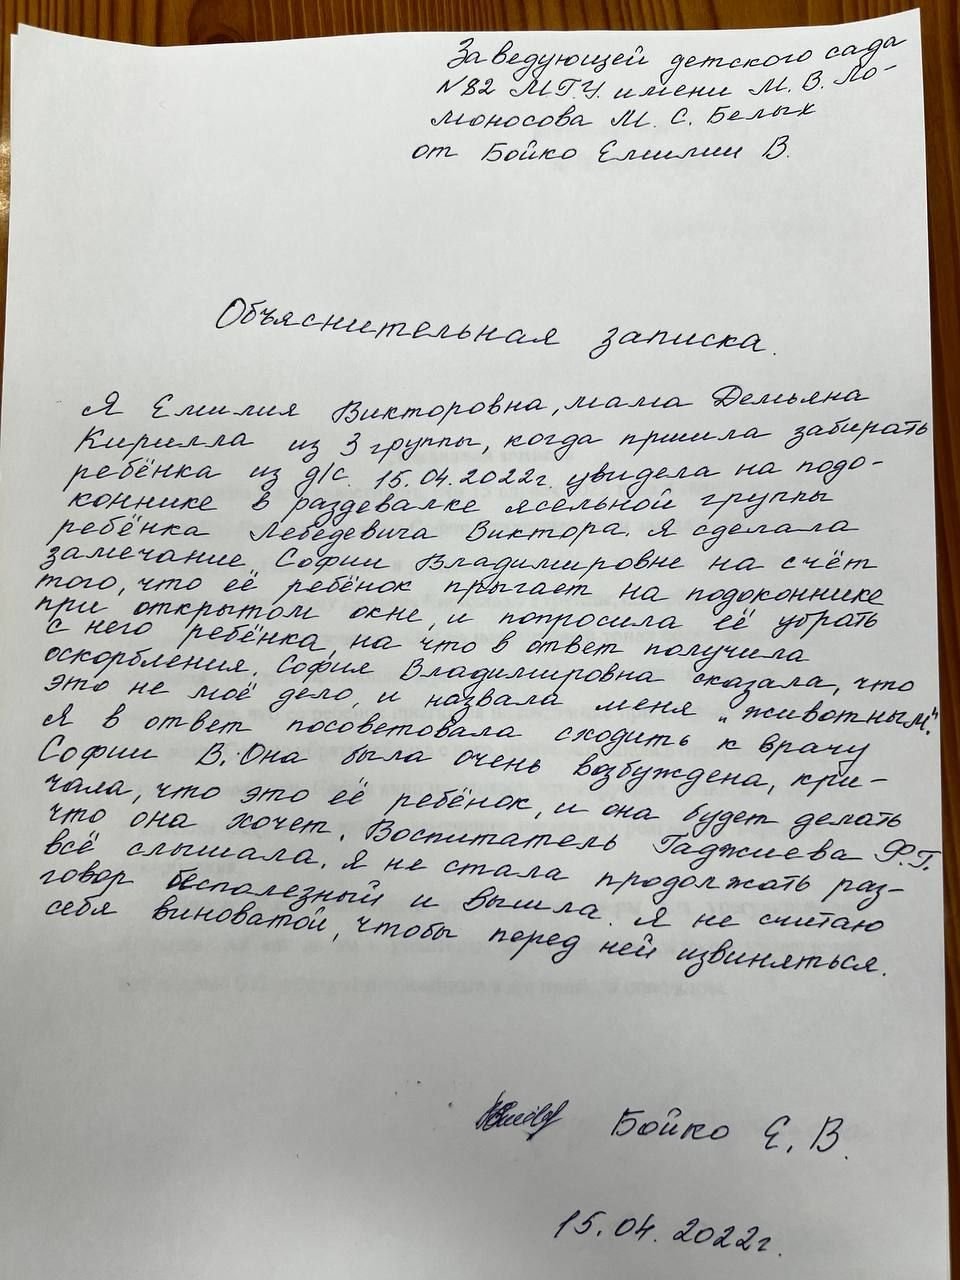 Заведующей детского сада
N82 МГУ имени М. В. Ло-
моносова М. С. Белых
от Бойко Емилии В.
Объяснительная записка.
Я Емилия Викторовна, мама Демьяна
Кирилла из 3 группы, когда пришла забирать
ребёнка из д/с. 15.04.2022г. увидела на подо-
коннике в раздевалке ясельной группы
ребёнка Лебедевича Виктора. Я сделала
замечание Софии Владимировне на счёт
того, что её ребёнок прыгает на подоконнике
при открытом окне, и попросила её убрать
с него ребёнка, на что в ответ получила
оскорбления. София Владимировна сказала, что
это не моё дело, и назвала меня „животным".
Я в ответ посоветовала сходить к врачу
Софии В. Она была очень возбуждена, кри-
чала, что это её ребёнок, и она будет делать
что она хочет. Воспитатель Гаджиева Ф.Г.
всё слышала. Я не стала продолжать раз-
говор бесполезный и вышла. Я не считаю
себя виноватой, чтобы перед ней извиняться.
Бойко Е. В.
15.04.2022г.